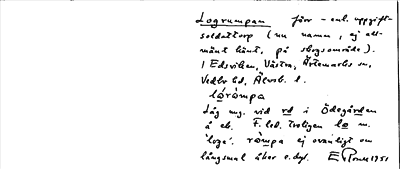 Logrumpan förr - enl. uppgift -
soldattorp (nu namn, ej all-
mänt känt, på skogsområde).
I Edsviken, Västra, Ärtemarks sn,
Vedbo hd, Älvsb. l.
lórómpa
Låg mg. vid rd i Ödegården
å eb. F. led. troligen lo m.
'loge'. rómpa ej ovanligt om
långsmal åker o. dyl. E 1951